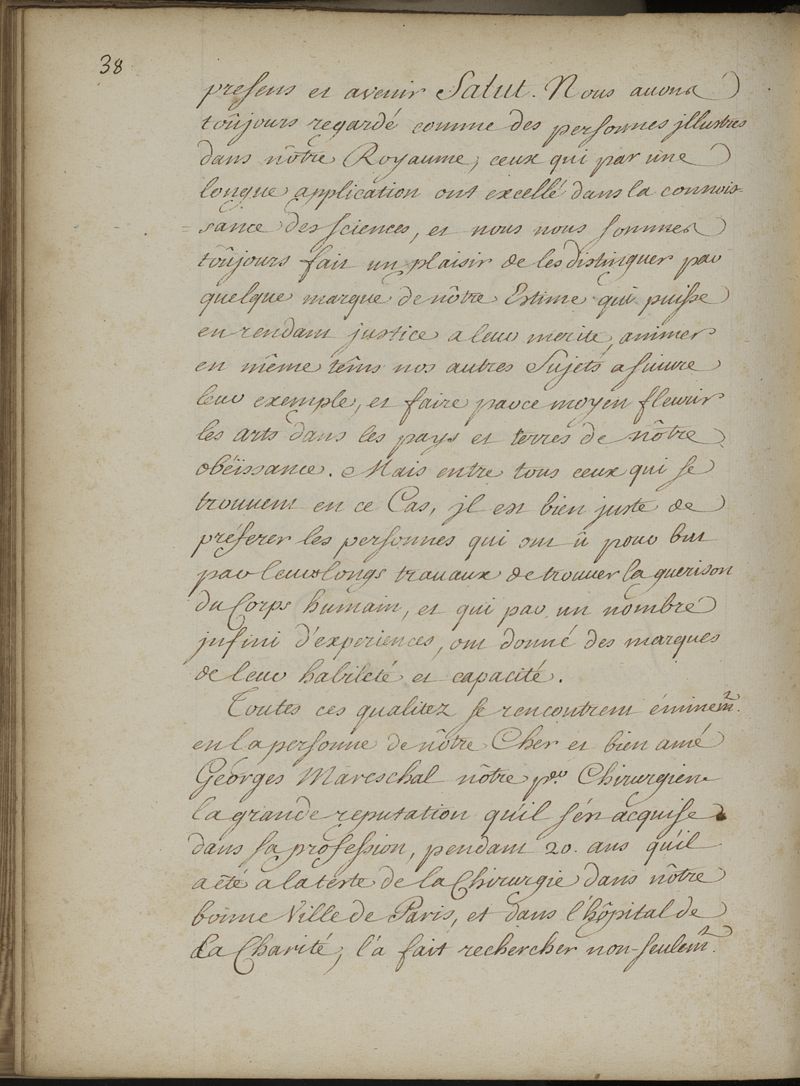 38
presens et avenir Salut. Nous avons
toûjours regardé comme des personnes jllustres
dans nôtre Royaume, ceux qui par une
longue application ont excellé dans la connois-
sance des sciences, et nous nous sommes
toûjours fait un plaisir de les distinguer par
quelque marque de nôtre Estime qui puisse
en rendant justice a leur merite, animer
en même têms nos autres Sujets a suivre
leur exemple, et faire par ce moyen fleurir
les arts dans les pays et terres de nôtre
obéissance. Mais entre tous ceux qui se
trouvent en ce Cas, jl est bien juste de
préferer les personnes qui ont û pour but
par leurs longs travaux de trouver la guerison
du Corps humain, et qui par un nombre
jnfini d'experiences, ont donné des marques
de leur habileté et capacité.
Toutes ces qualitez se rencontrent éminem.t
en la personne de nôtre Cher et bien amé
Georges Mareschal nôtre p.er Chirurgien
la grande reputation qu'il s'én acquise
dans sa profession, pendant 20. ans qu'il
a été a la teste de la Chirurgie dans nôtre
bonne Ville de Paris, et dans l'hôpital de
La Charité, l'a fait rechercher non-seulem.t